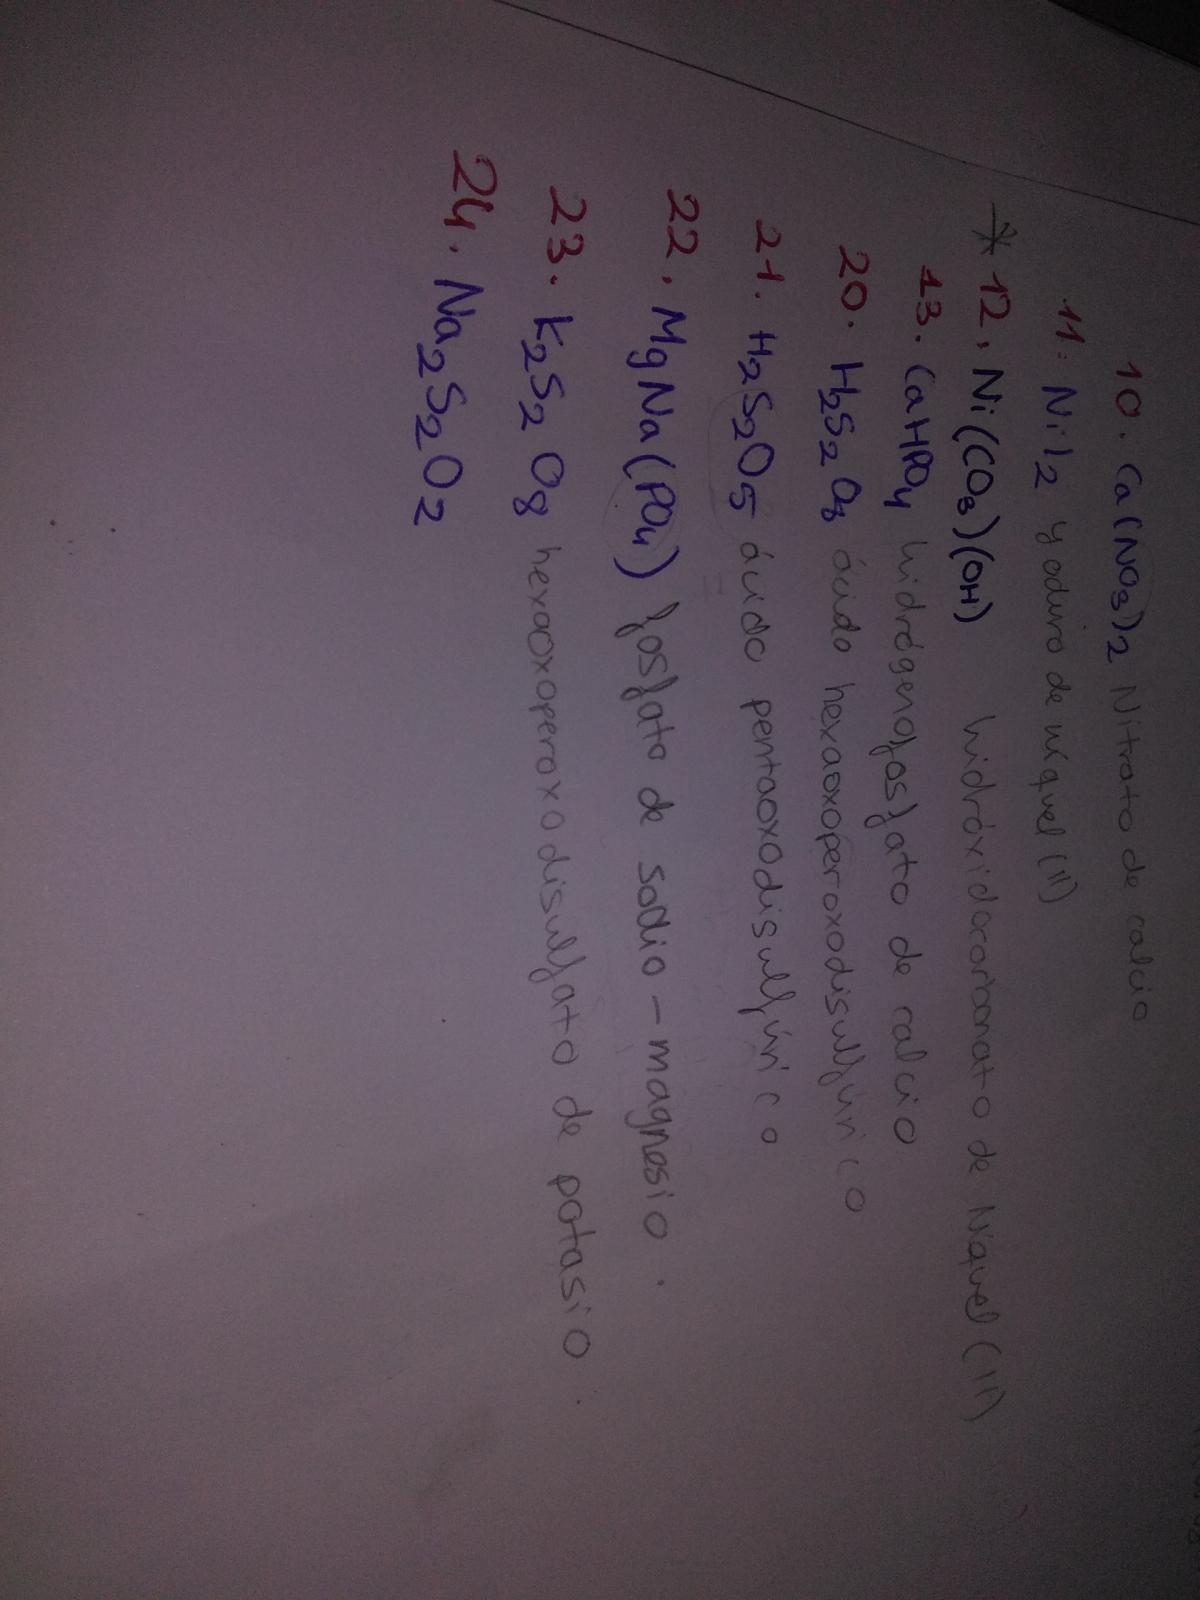 10. Ca(NO3)2 Nitrato de calcio
11: NiI2 yoduro de níquel (II)
* 12. Ni(CO3)(OH) hidróxidocarbonato de Níquel (II)
13. CaHPO4 hidrógenofosfato de calcio
20. H2S2O8 ácido hexaoxoperoxodisulfúrico
21. H2S2O5 ácido pentaoxodisulfúrico
22. MgNa(PO4) fosfato de sodio-magnesio.
23. K2S2O8 hexaoxoperoxodisulfato de potasio.
24. Na2S2O2